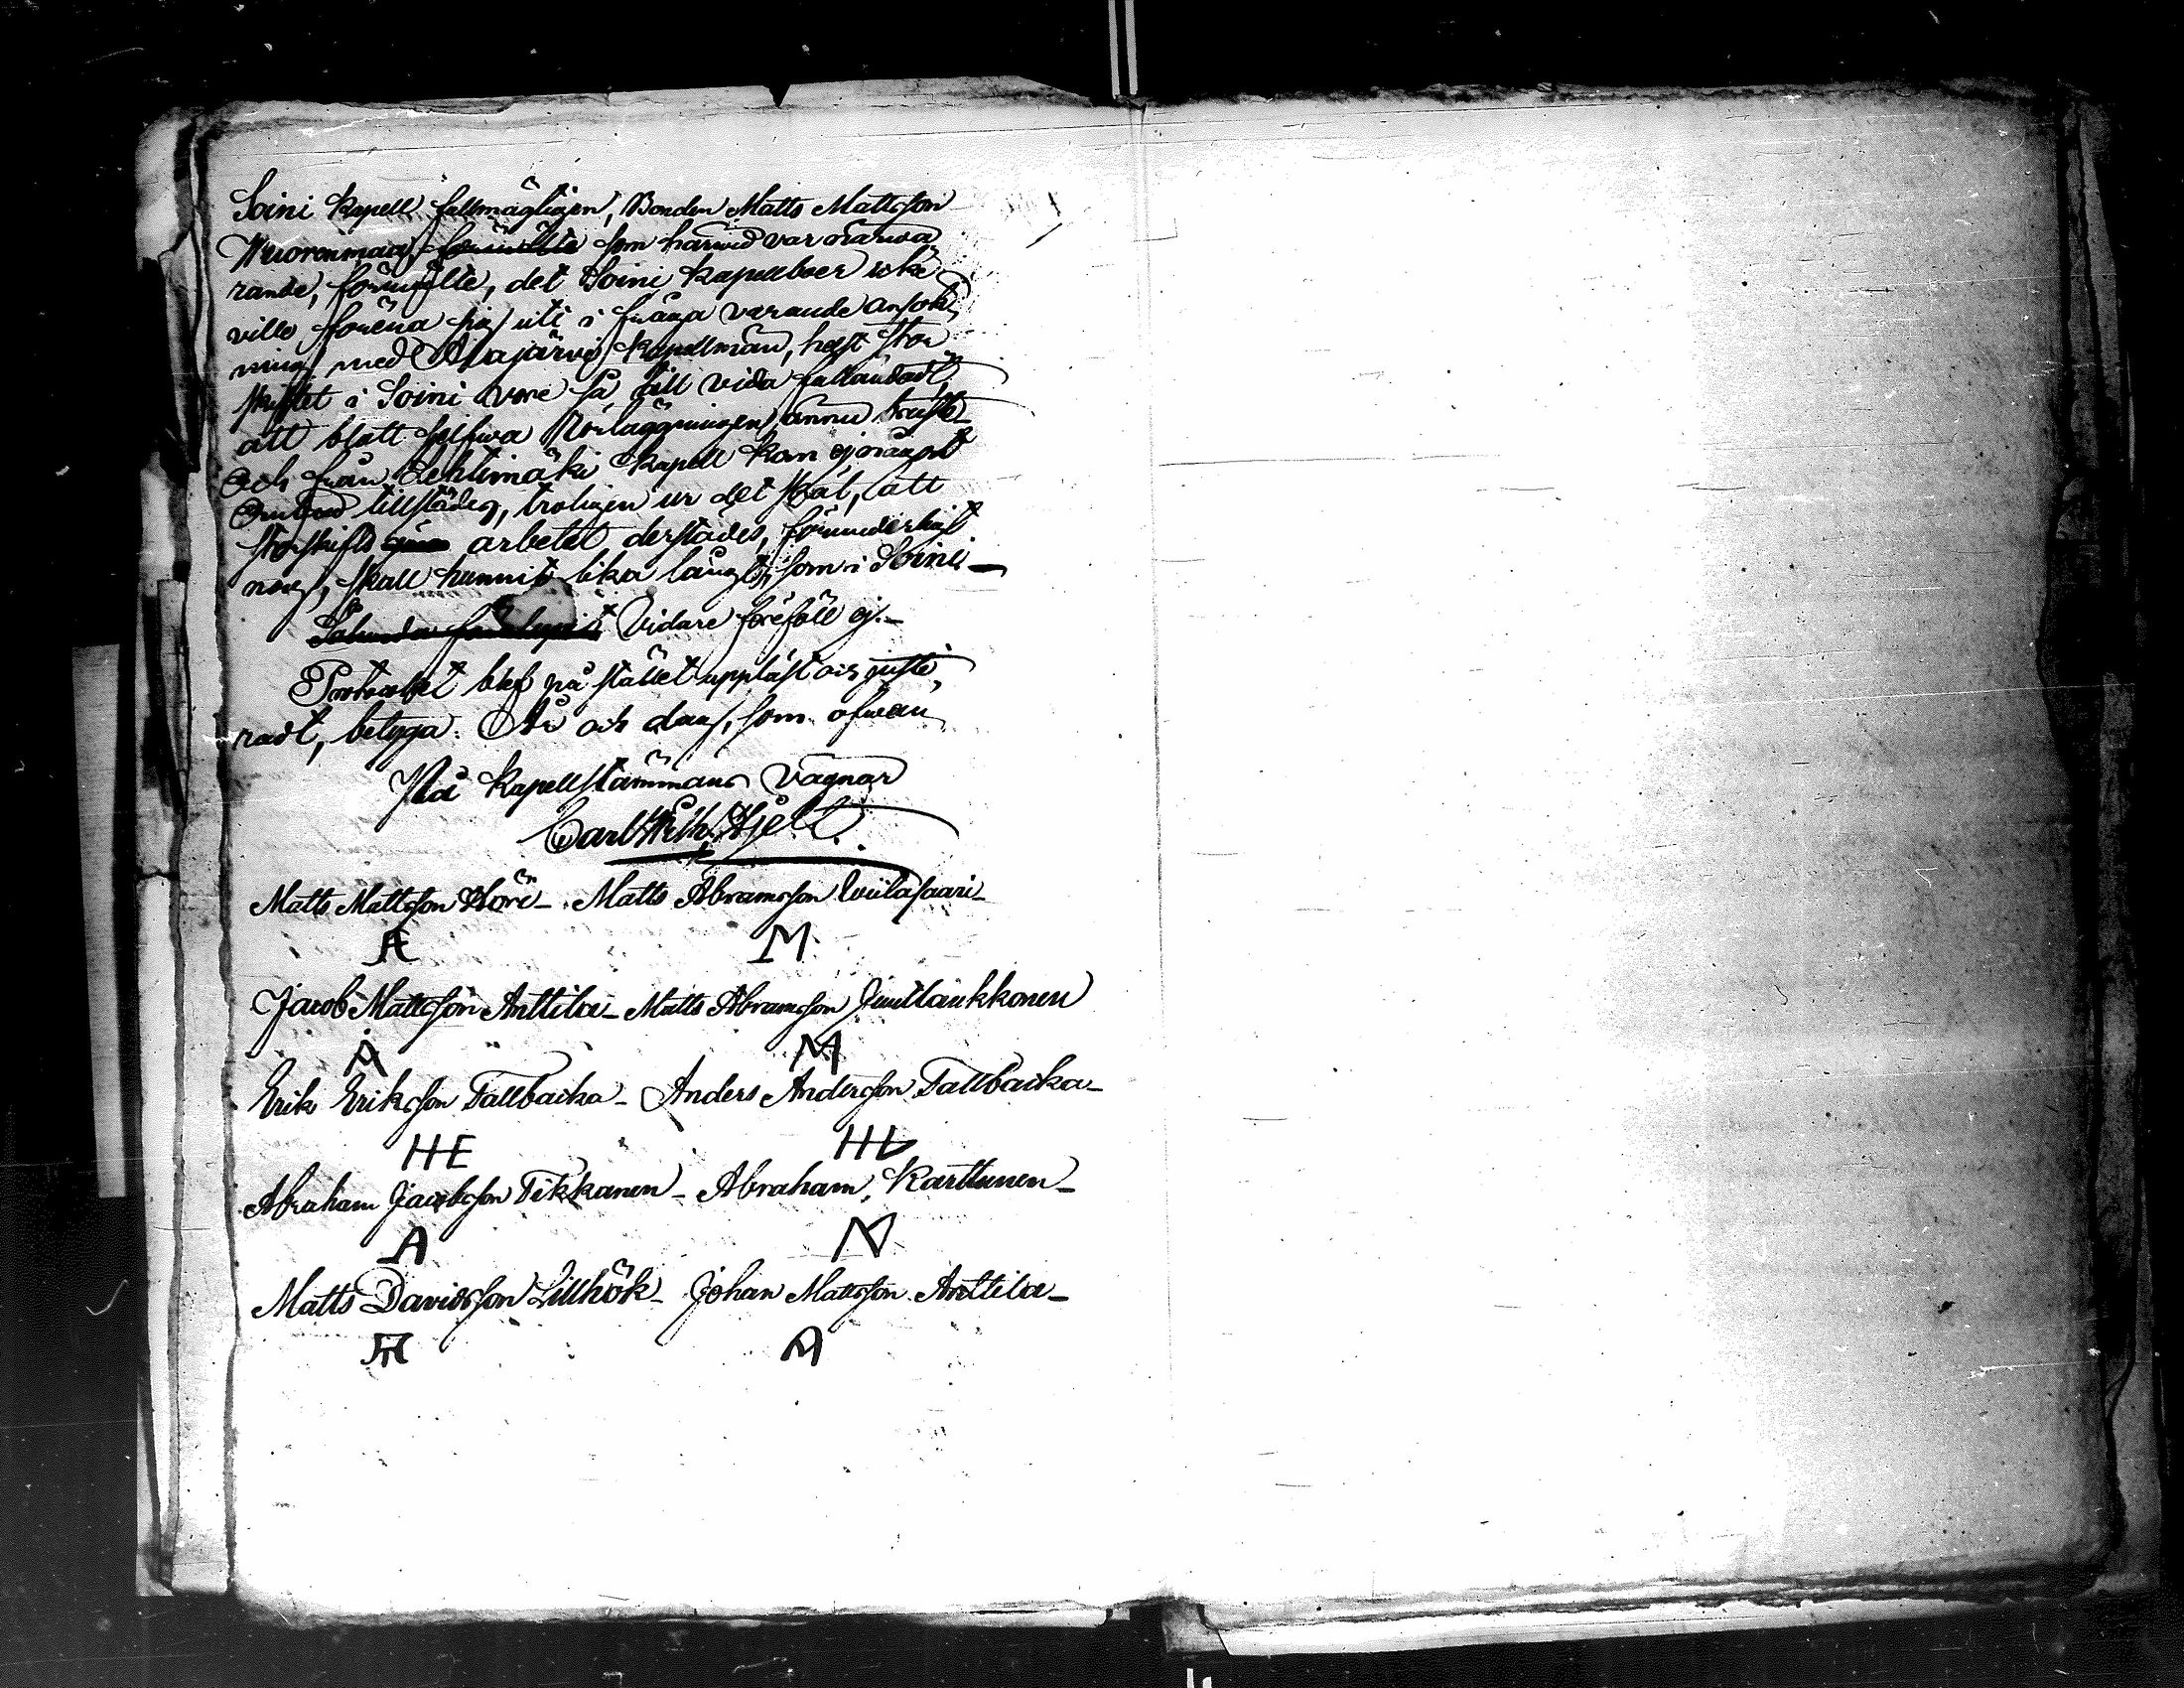 Soini Kapell fullmägtigen, Bonden Matts Mattsson
Wuorenmaa som härwid var närwa
rande, förmälte, det Soini Kapellboer icke
ville förena sig uti i fråga varande ansök,
ning med Alajärvi Kapellmän, helst stor
skiftet i Soini vore så till vida fulländadt,
att blott sjelfwa Rörläggningen ännu briste_
Och från Lehtimäki Kapell kom ej något
Ombud tillstädes, troligen ur det skäl, att
storskifts arbetet derstädes, förunderligt
nog, skall hunnit lika långt, som i Soini_
Vidare föreföll ej._
Protocollet blef på stället uppläst och juste,
radt, betyga. År och dag, som ofwan
På Kapellstämmans Vägnar
Carl Wilh. Hjelt.
Matts Mattsson Höri_ Matts Abramsson Wiitasaari_
M
Jacob Mattsson Anttila_ Matts Abramsson
A M
Erik Eriksson Tallbacka_ Anders Andersson Tallbacka_
HE HL
Abraham Jacobsson Tikkanen_ Abraham Karttunen_
A N
Matts Davidsson Lillhök_ Johan Mattsson Anttila_
A